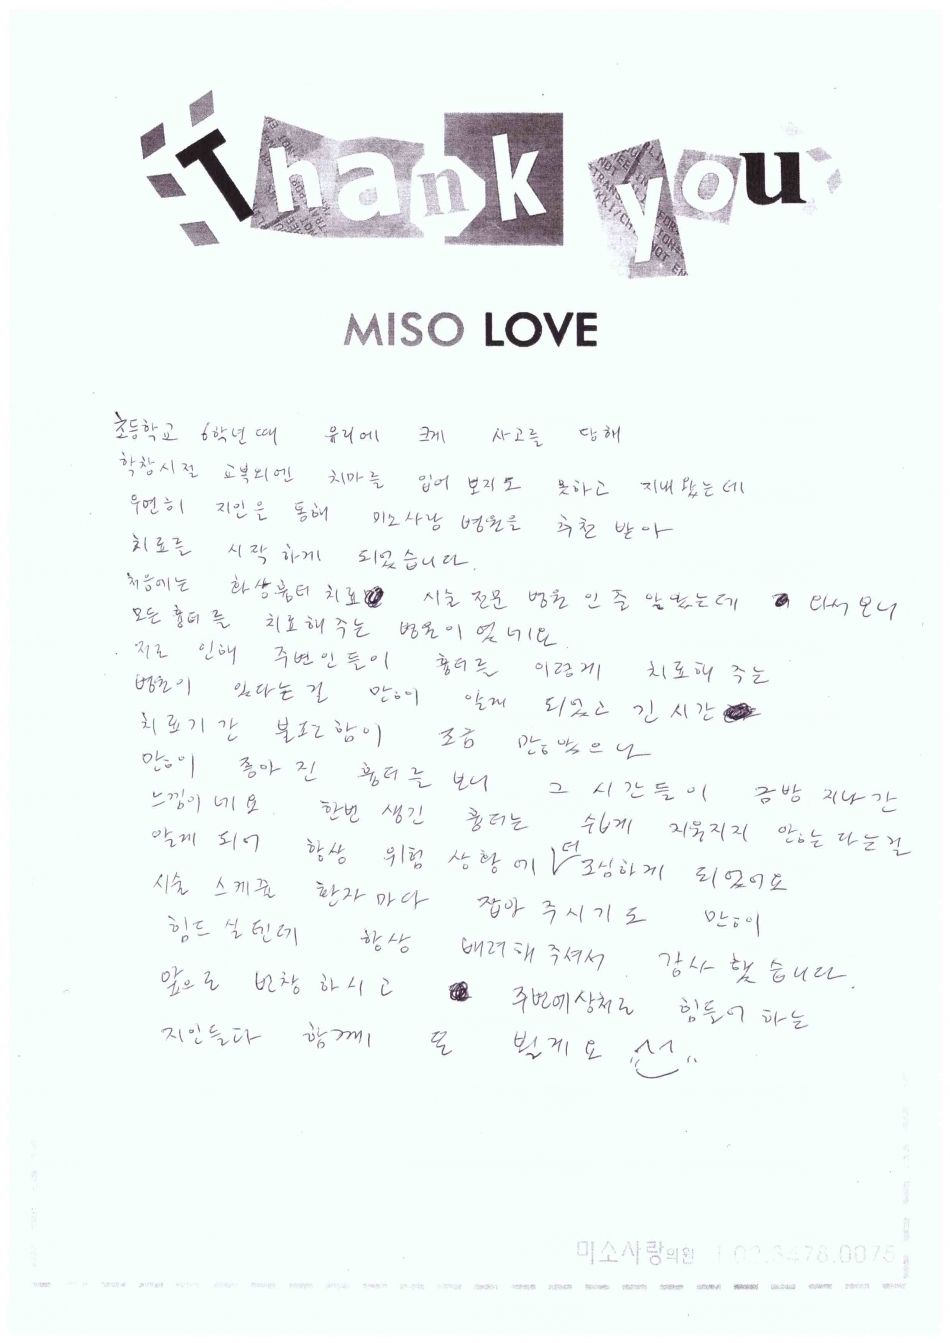 Thank you
MISO LOVE
초등학교 6학년때 유리에 크게 사고를 당해
학창시절 교복외엔 치마를 입어 보지도 못하고 지내왔는데
우연히 지인을 통해 미소사랑 병원을 추천 받아
치료를 시작하게 되었습니다.
처음에는 화상흉터치료 시술 전문 병원 인줄 알았는데 와서보니
모든 흉터를 치료해주는 병원이었네요
저로 인해 주변인들이 흉터를 이렇게 치료해 주는
병원이 있다는걸 많이 알게 되었고 긴 시간
치료기간 불편함이 조금 많았으나
많이 좋아진 흉터를 보니 그 시간들이 금방 지나간
느낌이네요. 한번 생긴 흉터는 쉽게 지워지지 않는다는걸
알게 되어 항상 위험 상황에 더 조심하게 되었어요
시술 스케쥴 환자마다 잡아 주시기도 많이
힘드실텐데 항상 배려해주셔서 감사했습니다.
앞으로 번창하시고 주변에상처로 힘들어 하는
지인들과 함께 또 뵐게요
미소사랑의원 T 02.3478.0075